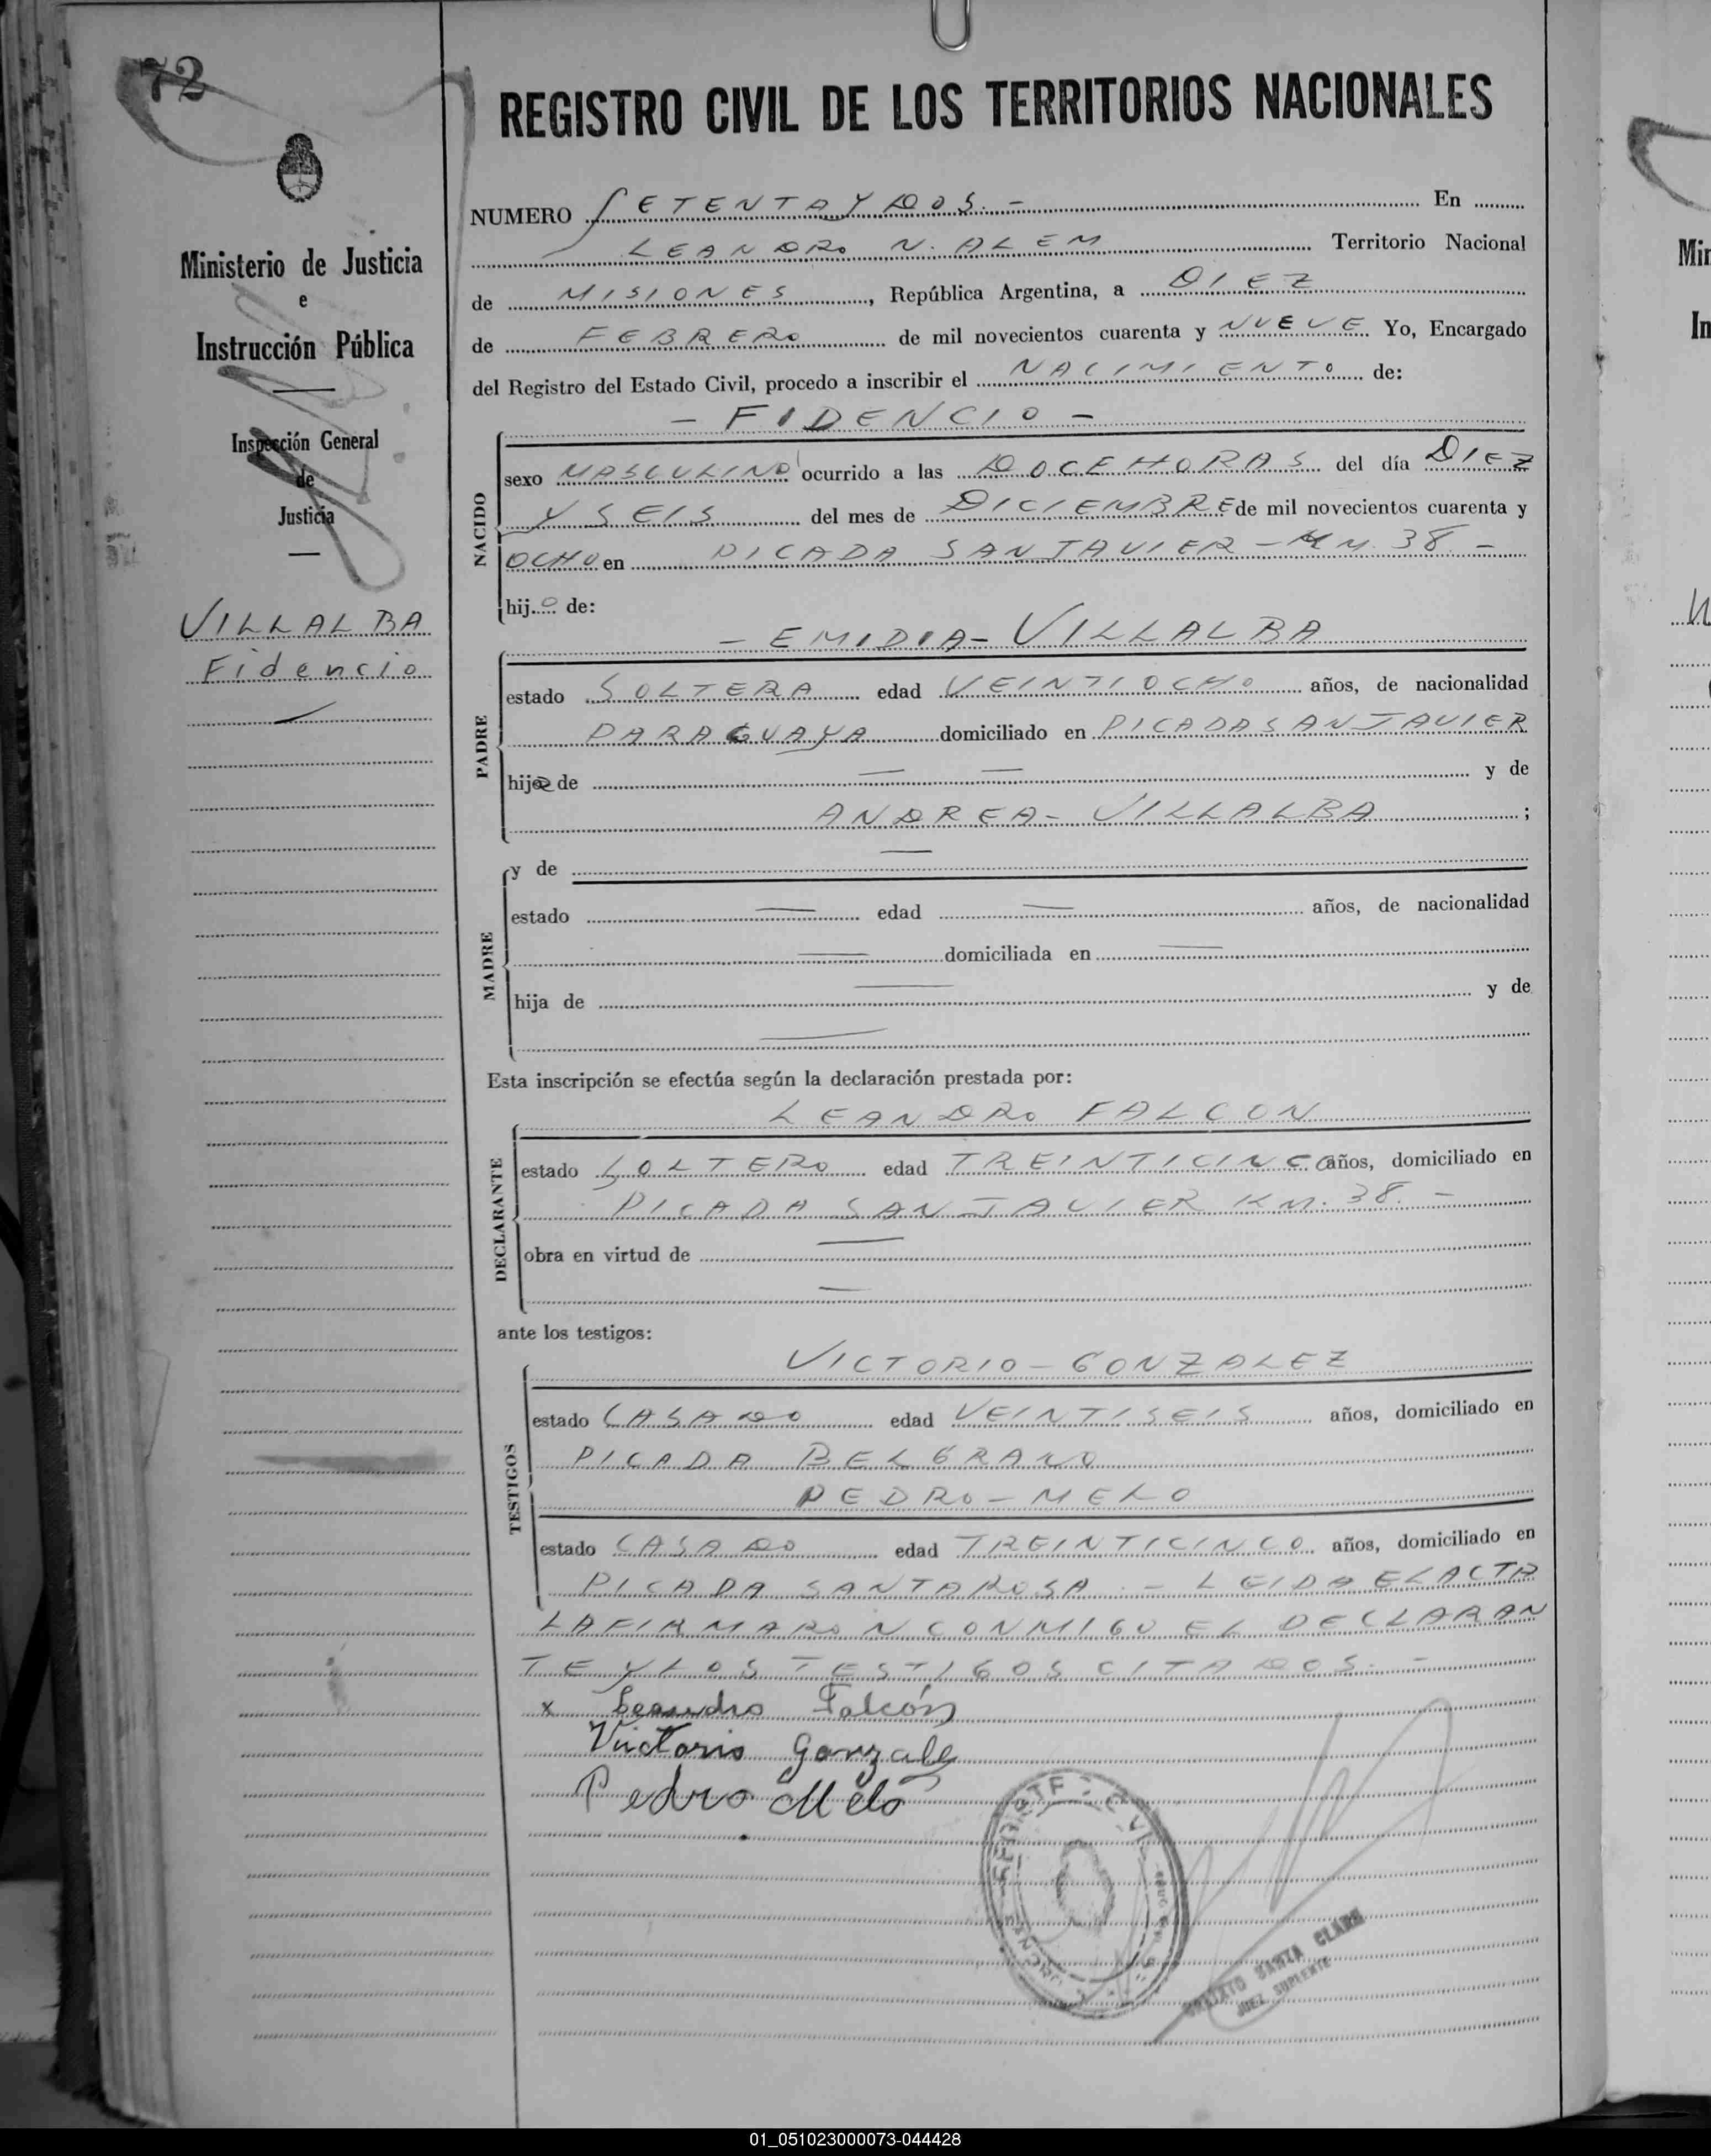 72
REGISTRO CIVIL DE LOS TERRITORIOS NACIONALES
Ministerio de Justicia
e
Instrucción Pública
Inspección General
de
Justicia
VILLALBA
Fidencio
NUMERO SETENTA Y DOS. - En
LEANDRO N. ALEM Territorio Nacional
de MISIONES, República Argentina, a DIEZ
de FEBRERO de mil novecientos cuarenta y NUEVE Yo, Encargado
del Registro del Estado Civil, procedo a inscribir el NACIMIENTO de:
- FIDENCIO -
NACIDO
sexo MASCULINO ocurrido a las DOCE HORAS del día DIEZ
Y SEIS del mes de DICIEMBRE de mil novecientos cuarenta y
OCHO en PICADA SAN JAVIER - KM. 38. -
hijo de:
- EMIDIA - VILLALBA
PADRE
estado SOLTERA edad VEINTIOCHO años, de nacionalidad
PARAGUAYA domiciliado en PICADA SAN JAVIER
hija de — — y de
ANDREA - VILLALBA ;
MADRE
y de —
estado — edad — años, de nacionalidad
— domiciliada en —
hija de — y de
—
Esta inscripción se efectúa según la declaración prestada por:
LEANDRO FALCON
DECLARANTE
estado SOLTERO edad TREINTICINCO años, domiciliado en
PICADA SAN JAVIER KM. 38. -
obra en virtud de —
—
ante los testigos:
VICTORIO - GONZALEZ
TESTIGOS
estado CASADO edad VEINTISEIS años, domiciliado en
PICADA BELGRANO
PEDRO - MELO
estado CASADO edad TREINTICINCO años, domiciliado en
PICADA SANTA ROSA. - LEIDA EL ACTA
LA FIRMARON CONMIGO EL DECLARAN
TE Y LOS TESTIGOS CITADOS. -
x Leandro Falcón
Victorio Gonzalez
Pedro Melo
SANTA CLARA
JUEZ SUPLENTE
01_051023000073-044428